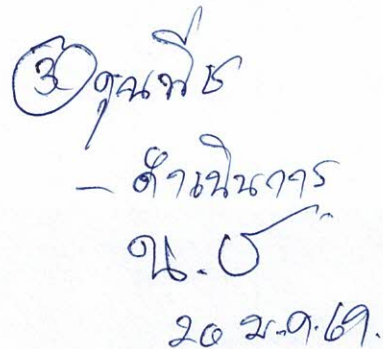 ③ คุณพีช
- ดำเนินการ
น.ช
20 ม.ค. 69.